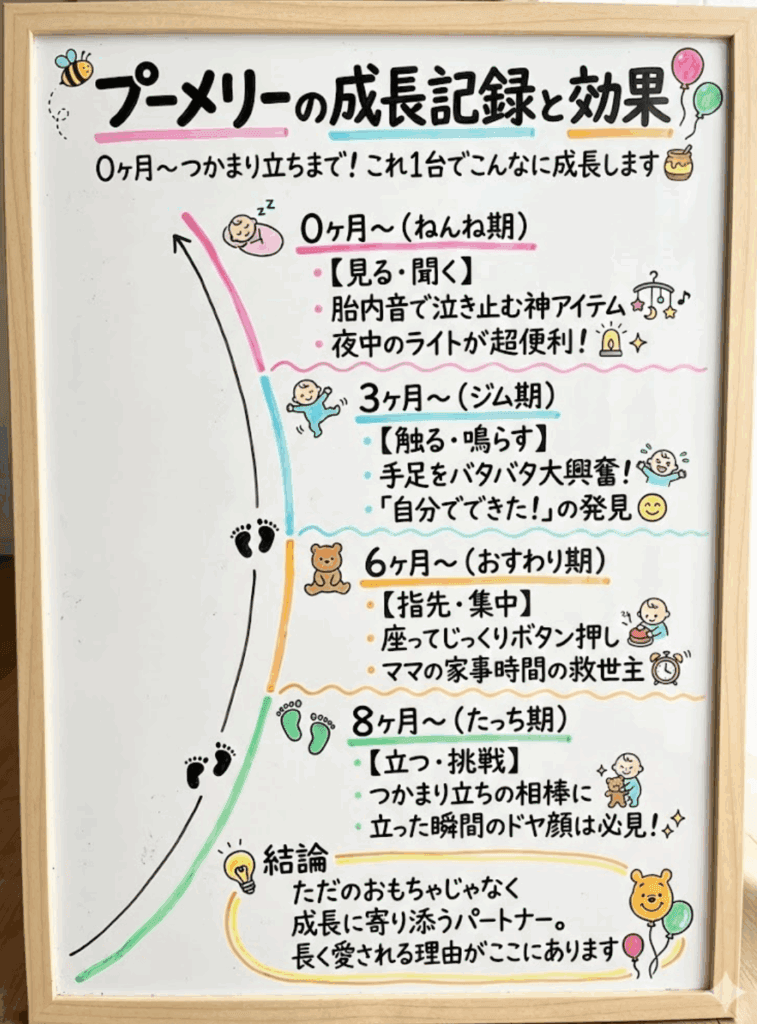 プーメリーの成長記録と効果
0ヶ月～つかまり立ちまで！これ1台でこんなに成長します
zz
0ヶ月～（ねんね期）
・【見る・聞く】
・胎内音で泣き止む神アイテム
・夜中のライトが超便利！
3ヶ月～（ジム期）
・【触る・鳴らす】
・手足をバタバタ大興奮！
・「自分でできた！」の発見
6ヶ月～（おすわり期）
・【指先・集中】
・座ってじっくりボタン押し
・ママの家事時間の救世主
8ヶ月～（たっち期）
・【立つ・挑戦】
・つかまり立ちの相棒に
・立った瞬間のドヤ顔は必見！
結論
ただのおもちゃじゃなく
成長に寄り添うパートナー。
長く愛される理由がここにあります